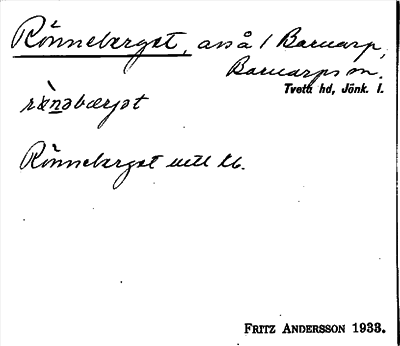 Rönneberget, avs å 1 Barnarp,
Barnarps sn.
Tveta hd, Jönk. l.
rænəbærjət
Rönneberget uttl tb.
FRITZ ANDERSSON 1933.